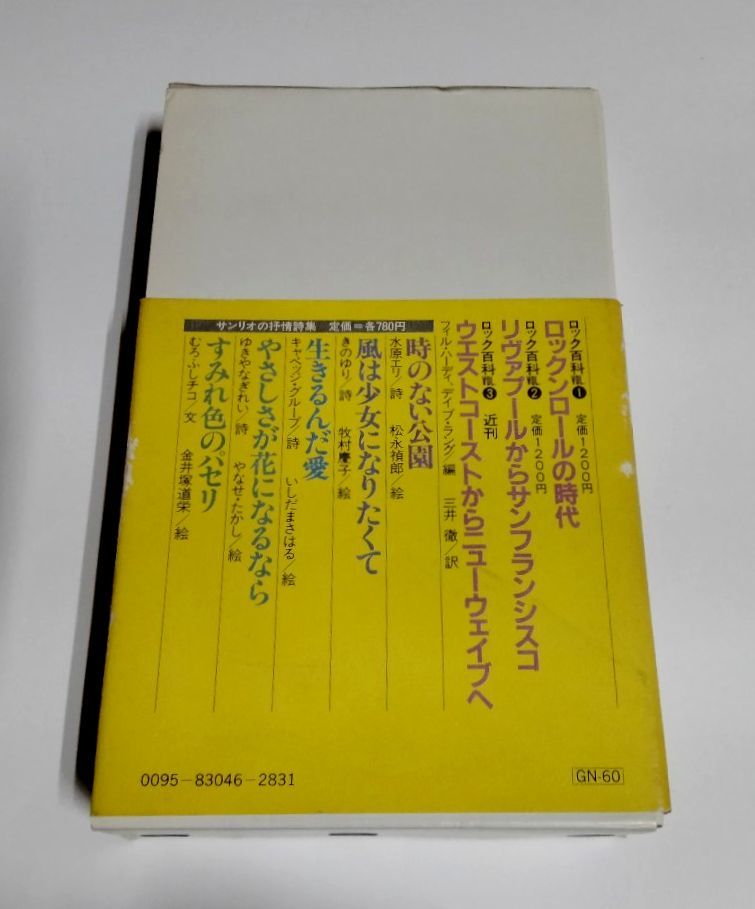 ロック百科㊞❶ 定価1200円
ロックンロールの時代
ロック百科㊞❷ 定価1200円
リヴァプールからサンフランシスコ
ロック百科㊞❸ 近刊
ウエストコーストからニューウェイブへ
フィル・ハーディ、デイブ・ラング/編 三井 徹/訳
サンリオの抒情詩集 定価=各780円
時のない公園
水原エリ/詩 松永禎郎/絵
風は少女になりたくて
きのゆり/詩 牧村慶子/絵
生きるんだ愛
キャベッジ・グループ/詩 いしだまさはる/絵
やさしさが花になるなら
ゆきやなぎれい/詩 やなせ・たかし/絵
すみれ色のパセリ
むろふしチコ/文 金井塚道栄/絵
0095-83046-2831
GN-60